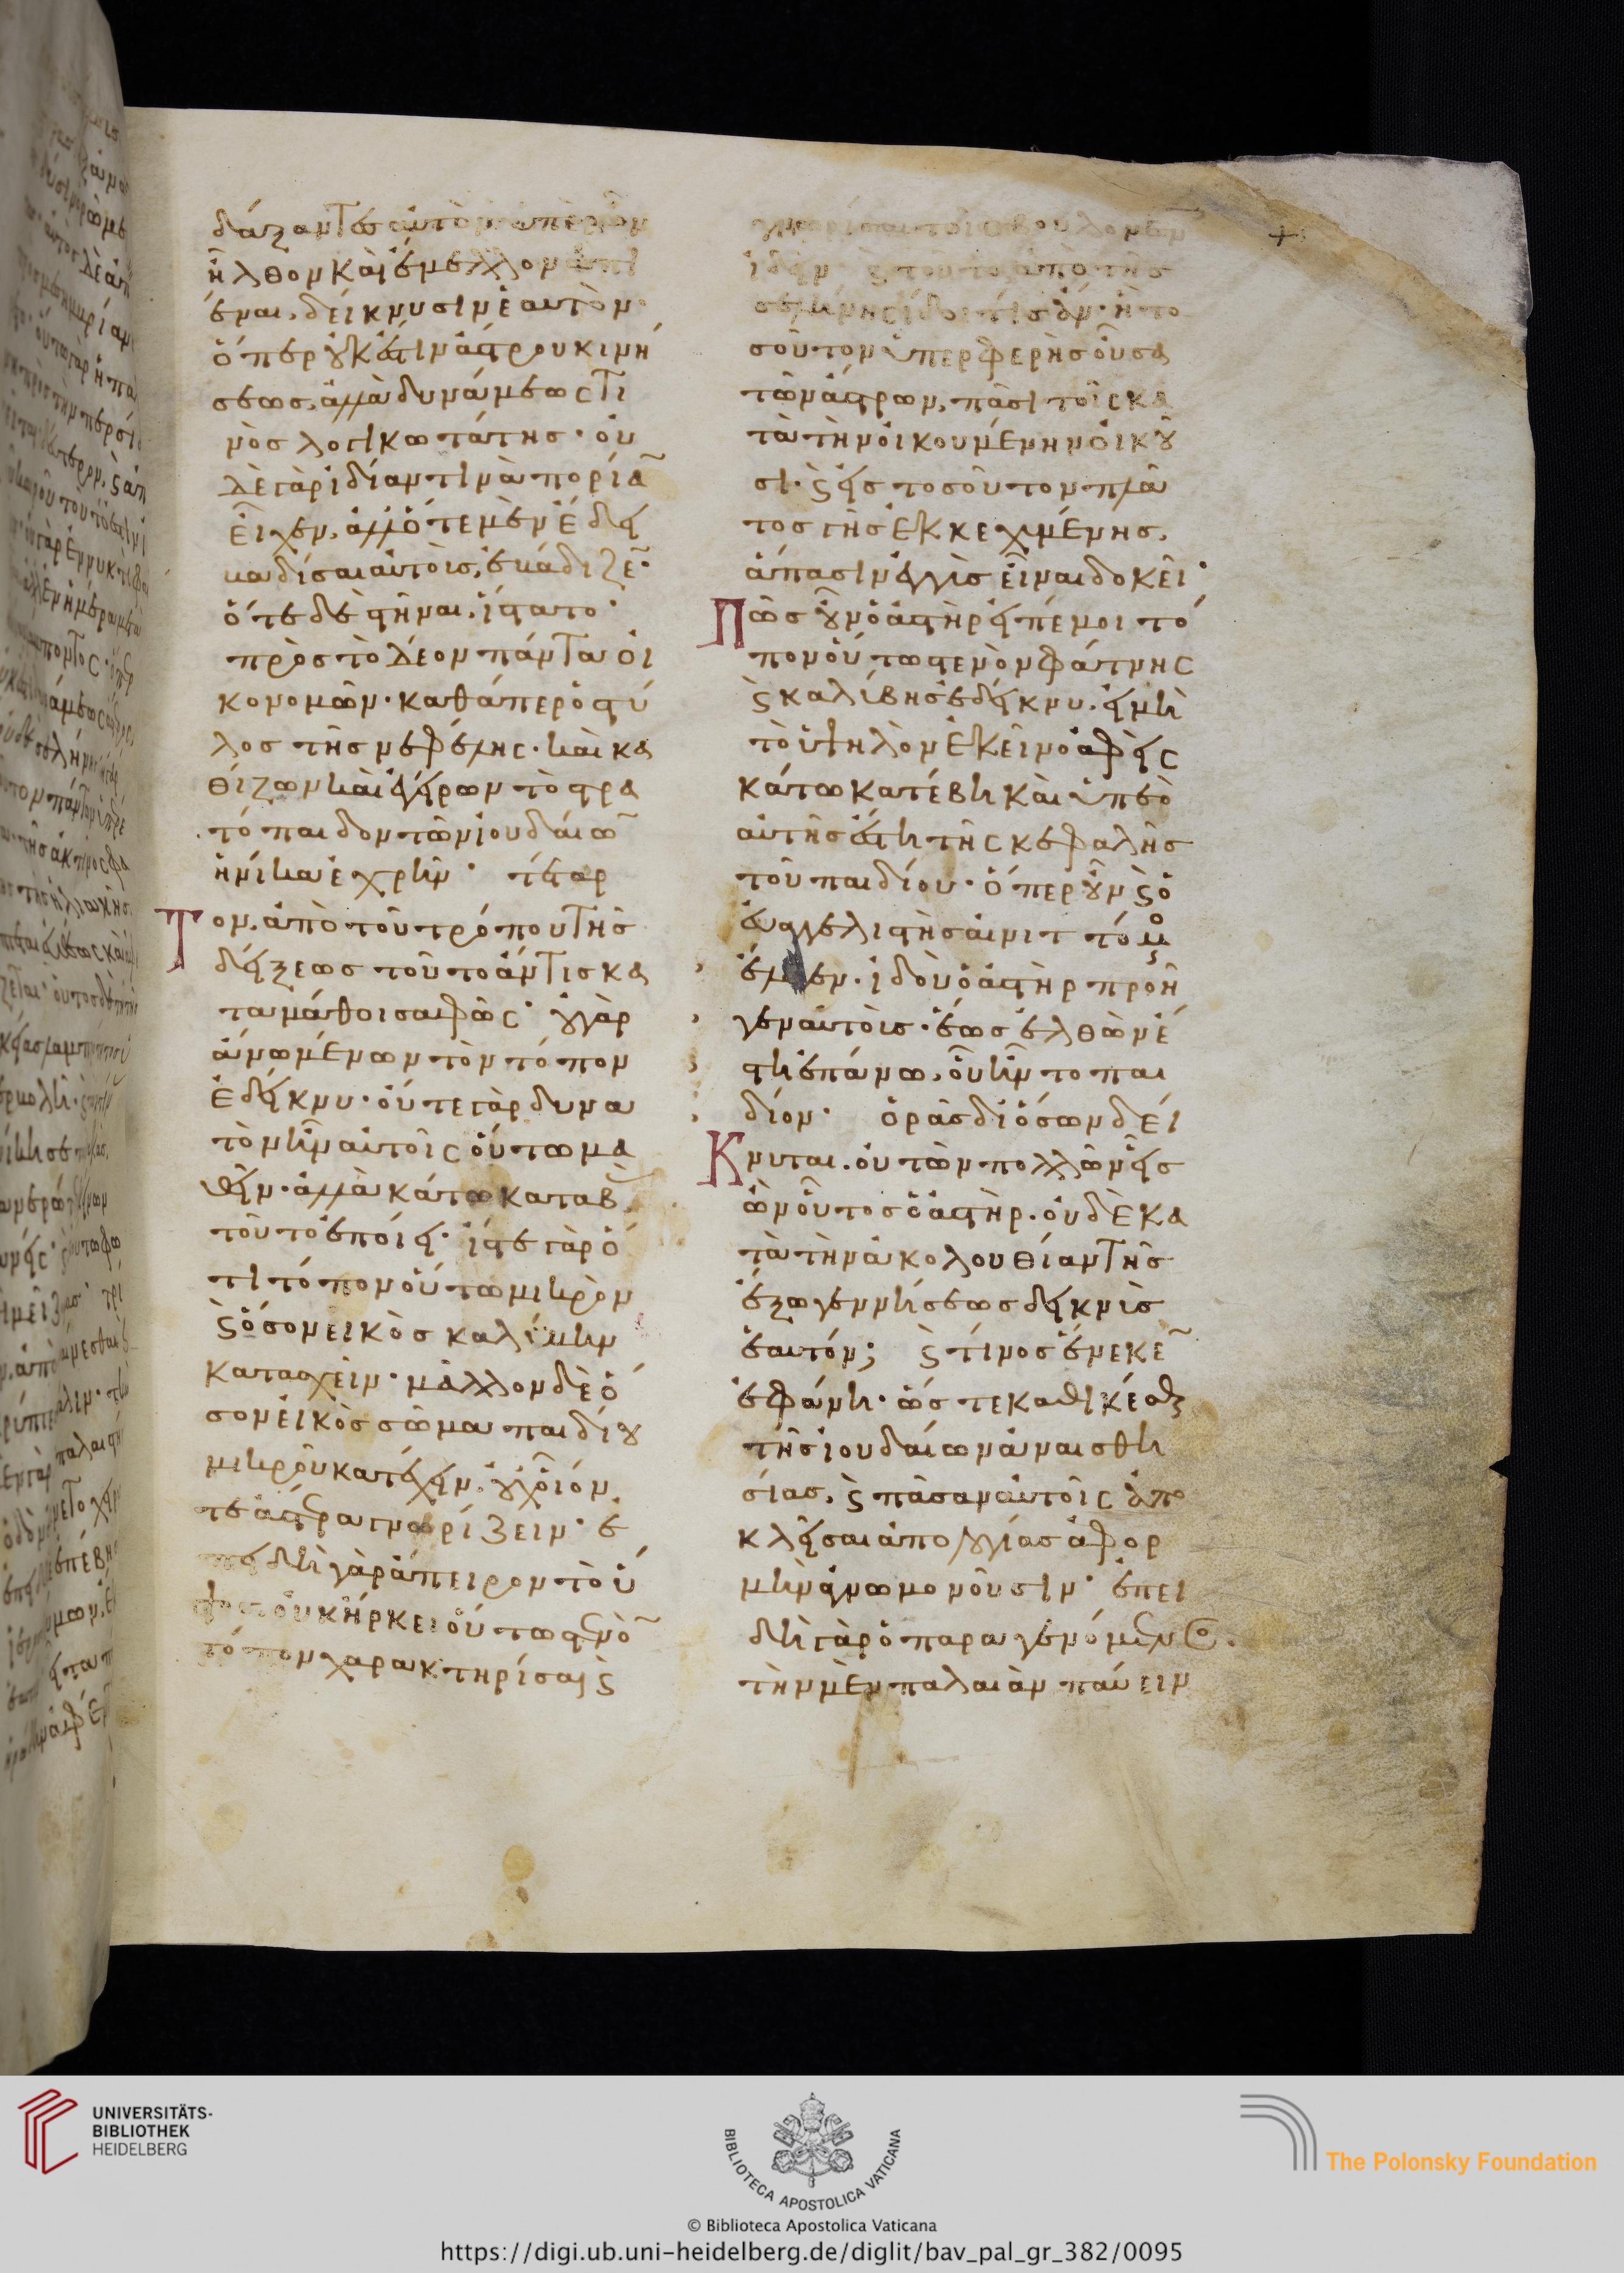 δάξαντες αὐτὸν ὑπὲρ ὧν
ἦλθον καὶ ἔμελλον ἀπι
έναι, δείκνυσιν ἑαυτὸν·
ὅπερ οὐκ ἔστιν ἄστρου κινή
σεως, ἀλλὰ δυνάμεώς τι
νὸς λογικωτάτης· οὐ
δὲ γὰρ ἰδίαν τινὰ πορεία
εἶχεν, ἀλλ' ὅτε μὲν ἔδει
βαδίσαι αὐτοῖς, ἐβάδιζε·
ὅτε δὲ στῆναι, ἵστατο·
πρὸς τὸ δέον πάντα οἰ
κονομῶν· καθάπερ ὁ στύ
λος τῆς νεφέλης· καὶ κα
θίζων καὶ ἐγείρων τὸ στρα
τόπεδον τῶν ἰουδαίω
ἡνίκα ἐχρῆν· τέταρ
Τον, ἀπὸ τοῦ τρόπου τῆς
δείξεως τοῦτο ἄν τις κα
ταμάθοι σαφῶς· οὐ γὰρ
ἄνω μένων τὸν τόπον
ἐδείκνυ· οὔτε γὰρ δυνα
τὸν ἦν αὐτοῖς οὕτω μα
θεῖν· ἀλλὰ κάτω καταβὰς
τοῦτο ἐποίει· ἴστε γὰρ ὅ
τι τόπον οὕτω μικρὸν
ϛ ὅσον εἰκὸς καλύβην
κατασχεῖν· μᾶλλον δὲ ὅ
σον εἰκὸς σῶμα παιδίου
μικροῦ κατέχειν, οὐχ οἷόν
τε ἄστρα γνωρίζειν· ἐ
πειδὴ γὰρ ἄπειρον τὸ ὕ
ψος οὐκ ἤρκει οὕτω στενὸ
τόπον χαρακτηρίσαι ϛ
γνωρίσαι τοῖς βουλομένοις
ἰδεῖν ϛ τοῦτο ἀπὸ τῆς
σελήνης ἴδοι τις ἄν· ἣ το
σοῦτον ὑπερφερὴς οὖσα
τῶν ἄστρων, πᾶσι τοῖς κα
τὰ τὴν οἰκουμένην οἰκοῦ
σι· ϛ εἰς τοσοῦτον πλά
τος γῆς ἐκκεχυμένης,
ἅπασιν ἐγγὺς εἶναι δοκεῖ·
Πῶς οὖν ὁ ἀστὴρ εἰπέ μοι τό
πον οὕτω στενὸν φάτνης
ϛ καλύβης ἐδείκνυ, εἰ μὴ
τὸ ὑψηλὸν ἐκεῖνο ἀφεὶς
κάτω κατέβη καὶ ὑπὲρ
αὐτῆς ἔστη τῆς κεφαλῆς
τοῦ παιδίου· ὅπερ οὖν ϛ ὁ
εὐαγγελιστὴς αἰνιττόμενος
ἔλεγεν· ἰδοὺ ὁ ἀστὴρ προῆ
γεν αὐτοῖς· ἕως ἐλθὼν ἔ
στη ἐπάνω, οὗ ἦν το παι
δίον· ὁρᾷς δι' ὅσων δεί
Κνυται, οὐ τῶν πολλῶν εἷς
ὢν οὗτος ὁ ἀστὴρ· οὐδὲ κα
τὰ τὴν ἀκολουθίαν τῆς
ἔξω γεννήσεως δεικνὺς
ἑαυτόν; ϛ τίνος ἕνεκε
ἐφάνη· ὥστε καθικέσθαι
τῆς ἰουδαίων ἀναισθη
σίας, ϛ πᾶσαν αὐτοῖς ἀπο
κλεῖσαι ἀπολογίας ἀφορ
μὴν ἀγνωμονοῦσιν· ἐπει
δὴ γὰρ ὁ παραγενόμενος
τὴν μὲν παλαιὰν παύειν
UNIVERSITÄTS-
BIBLIOTHEK
HEIDELBERG
BIBLIOTECA APOSTOLICA VATICANA
The Polonsky Foundation
© Biblioteca Apostolica Vaticana
https://digi.ub.uni-heidelberg.de/diglit/bav_pal_gr_382/0095